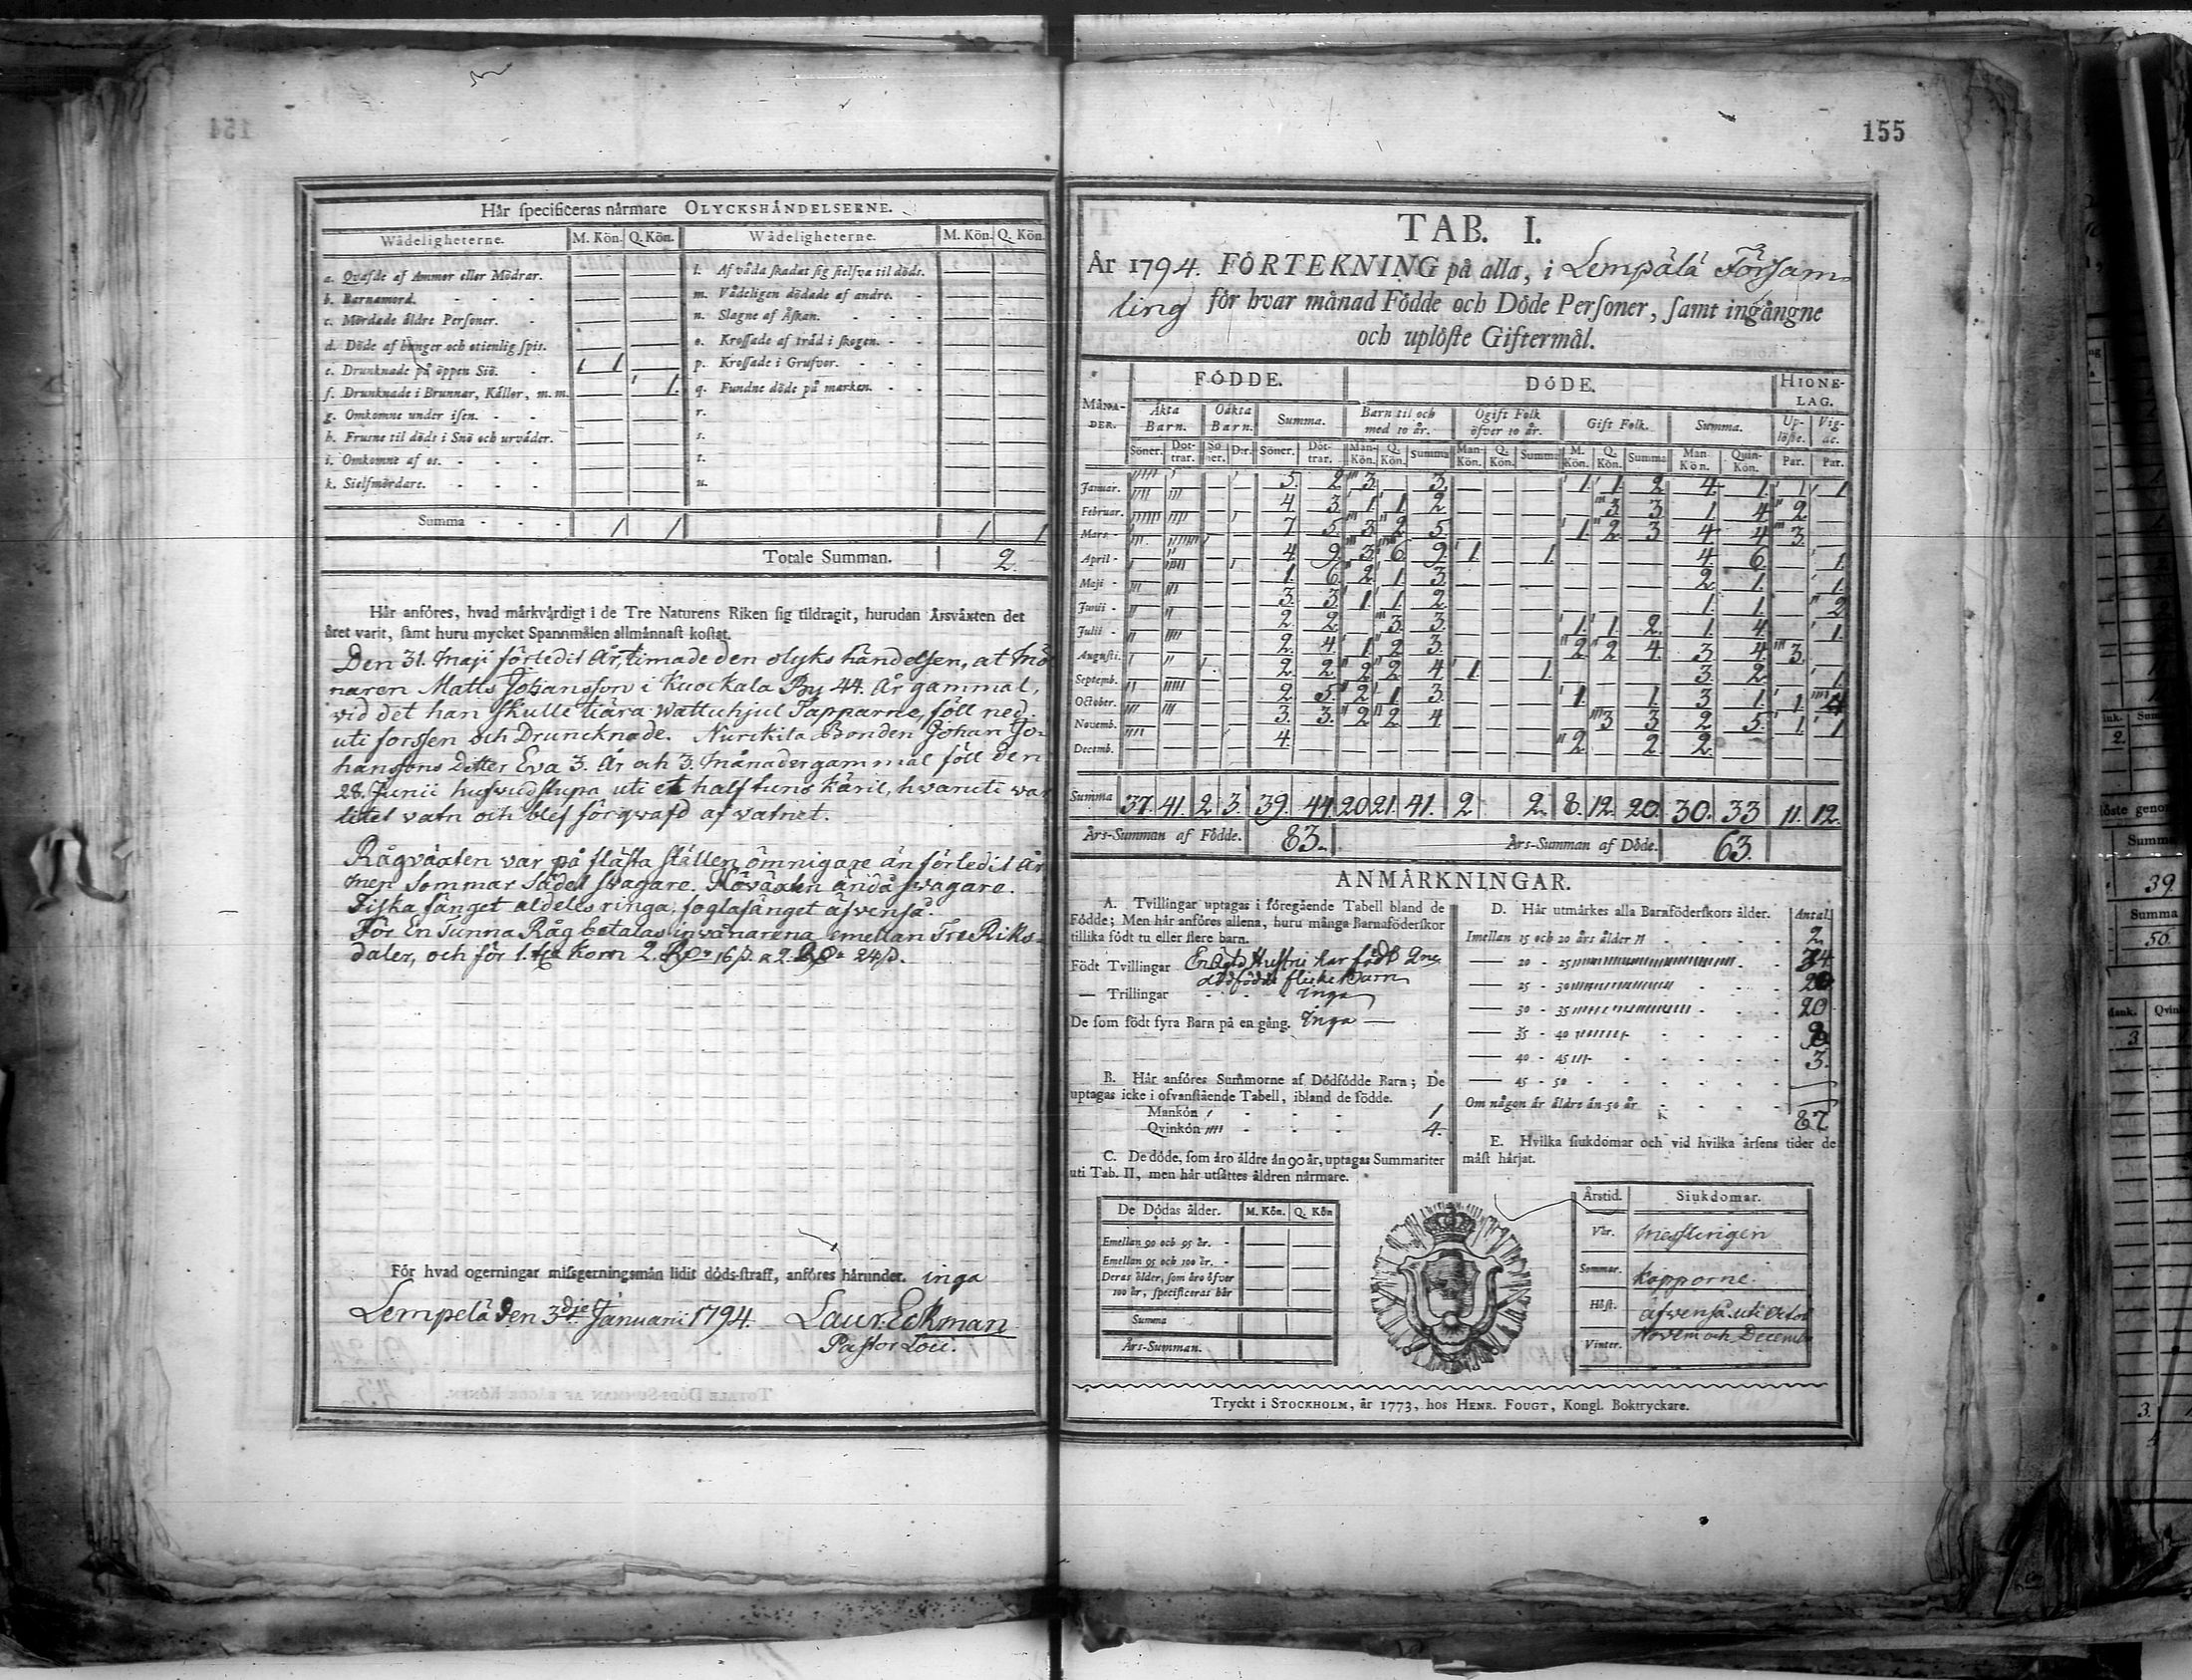 155
Hår specificeras nårmare OLYCKSHÅNDELSERNE.
Wådeligheterne. M. Kön. Q. Kön. Wådeligheterne. M. Kön. Q. Kön.
a. Qvafde af Ammor eller Mödrar. l. Af våda skadat sig sielfva til döds.
b. Barnamord. m. Vådeligen dödade af andre.
c. Mördade åldre Personer. n. Slagne af Åskan.
d. Döde af hunger och otienlig spis. o. Krossade af tråd i skogen.
e. Drunknade på öppen Siö. 1 p. Krossade i Grufvor.
f. Drunknade i Brunnar, Kållor, m. m. 1. q. Fundne döde på marken.
g. Omkomne under isen. r.
h. Frusne til döds i Snö och urvåder. s.
i. Omkomne af os. t.
k. Sielfmördare. u.
Summa 1 1 1 1
Totale Summan. 2.
Hår anföres, hvad mårkvårdigt i de Tre Naturens Riken sig tildragit, hurudan Årsvåxten det
året varit, samt huru mycket Spannmålen allmånnast kostat.
Den 31. Maji förledit År, timade den olyks händelsen, at Möl
naren Matts Johansson i Kuockala By 44. År gammal,
vid det han skulle tiära Wattuhjul Tapparne, föll ned
uti forssen och Druncknade. Nurckila Bonden Johan Jo-
hanssons Dotter Eva 3. År och 3. Månader gammal föll den
28. Junii hufwudstupa uti et half tuns käril, hvaruti war
litet vatn och blef förqwafd af vatnet.
Rågväxten var på flästa ställen ömnigare än förledit År
men Sommar Sädes swagare. Höväxten ändå swagare.
Fiska fänget aldeles ringa, foglafänget äfvenså.
För En Tunna Råg betalas invånarena emellan Tre Riks-
daler, och för 1. Korn 2. 16 ß. a 2. 24 ß.
För hvad ogerningar missgerningsmån lidit döds-straff, anföres hårunder. inga
Lempelä den 3dje Januarii 1794. Laur: Eckman
Pastor Loci.
TAB. I.
År 1794. FÖRTEKNING på alla, i Lempälä Församling
för hvar månad Födde och Döde Personer, samt ingångne
och uplöste Giftermål.
MÅNADER. FÖDDE. DÖDE. HIONELAG.
Åkta Barn. Oåkta Barn. Summa. Barn til och med 10 år. Ogift Folk öfver 10 år. Gift Folk. Summa. Uplöste. Vigde.
Söner. Dottrar. Söner. D:r. Söner. Dottrar. Mankön. Q. Kön. Summa Man Kön. Q. Kön. Summa M. Kön. Q. Kön. Summa Man Kön. Quinkön. Par. Par.
Januar. 5. 2. 3. 3. 1. 1. 2 4. 1. 1 1
Februar. 4. 3. 1. 1. 2 3 3 1 4 2
Mars. 7 5. 3. 2. 5. 1. 2. 3 4 4 3.
April. 4. 9. 3. 6. 9. 1. 1. 4. 6. 1.
Maji 1. 6. 2. 1. 3. 2. 1. 1.
Junii 3. 3. 1. 1. 2 1. 1. 2
Julii 2. 2. 3. 3. 1. 1. 2. 1. 4. 1.
Augusti. 2. 4. 1. 2 3. 2. 2 4. 3 4. 3.
Septemb. 2. 2. 2. 2. 4 1. 1. 3. 2. 1.
October. 2. 5. 2. 1. 3. 1. 1. 3 1. 1 4
Novemb. 3. 3. 2 2. 4 3 3 2 5. 1. 1
Decemb. 4. 2. 2 2
Summa 37. 41. 2 3. 39. 44 20 21. 41. 2 2. 8. 12. 20. 30. 33 11. 12.
Års-Summan af Födde. 83. Års-Summan af Döde. 63.
ANMÅRKNINGAR.
A. Tvillingar uptagas i föregående Tabell bland de
Födde; Men hår anföres allena, huru många Barnaföderskor
tillika födt tu eller flere barn.
Födt Tvillingar En Ägta Hustru har födt 2ne
dödfödde flicke Barn
— Trillingar inga
De som födt fyra Barn på en gång. Inga
B. Hår anföres Summorne af Dödfödde Barn; De
uptagas icke i ofvanstående Tabell, ibland de födde.
Mankön 1
Qvinkön 4.
C. De döde, som åro åldre ån 90 år, uptagas Summariter
uti Tab. II, men hår utsåttes åldren nårmare.
De Dödas ålder. M. Kön. Q. Kön
Emellan 90 och 95 år.
Emellan 95 och 100 år.
Deras ålder, som åro öfver
100 år, specificeras hår
Summa
Års-Summan.
D. Hår utmårkes alla Barnföderskors ålder. Antal
Imellan 15 och 20 års ålder 2
— 20 - 25
— 25 - 30
— 30 - 35 20
— 35 - 40
— 40 - 45 3.
— 45 - 50
Om någon år åldre ån 50 år
87
E. Hvilka siukdomar och vid hvilka årsens tider de
måst hårjat.
Årstid. Siukdomar.
Vår. Messlingen
Sommar. Kopporne.
Höst. äfvenså uti Octob
Vinter. Novem och Decemb
Tryckt i STOCKHOLM, år 1773, hos HENR. FOUGT, Kongl. Boktryckare.